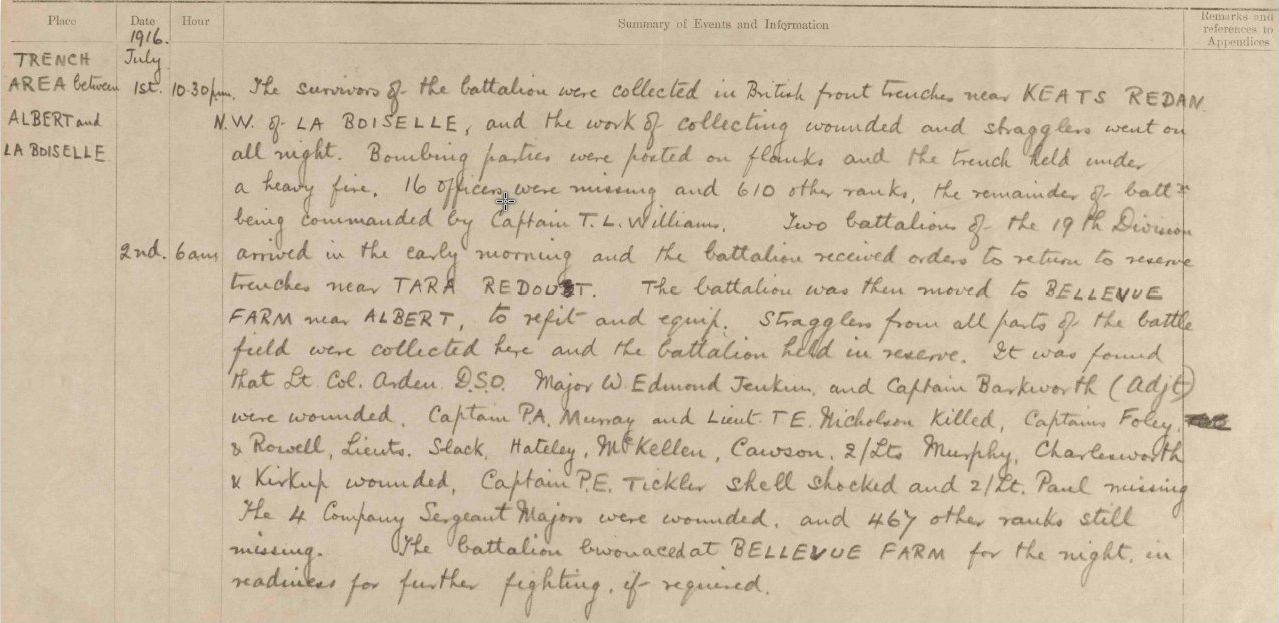 Place Date Hour Summary of Events and Information Remarks and references to Appendices
1916.
TRENCH July
AREA between 1st. 10.30pm. The survivors of the battalion were collected in British front trenches near KEATS REDAN
ALBERT and N.W. of LA BOISELLE, and the work of collecting wounded and stragglers went on
LA BOISELLE all night. Bombing parties were posted on flanks and the trench held under
a heavy fire. 16 officers were missing and 610 other ranks, the remainder of battn
being commanded by Captain T. L. Williams. Two battalions of the 19th Division
2nd. 6am arrived in the early morning and the battalion received orders to return to reserve
trenches near TARA REDOUBT. The battalion was then moved to BELLEVUE
FARM near ALBERT, to refit and equip. Stragglers from all parts of the battle
field were collected here and the battalion held in reserve. It was found
that Lt. Col. Arden D.S.O. Major W. Edmond Jenkins, and Captain Barkworth (Adjt)
were wounded. Captain P.A. Murray and Lieut. T E. Nicholson Killed, Captains Foley,
& Rowell, Lieuts. Slack, Hateley, McKellen, Cawson, 2/Lts Murphy, Charlesworth
& Kirkup wounded, Captain P.E. Tickler shell shocked and 2/Lt. Paul missing
The 4 Company Sergeant Majors were wounded. and 467 other ranks still
missing. The battalion bivouaced at BELLEVUE FARM for the night, in
readiness for further fighting, if required.